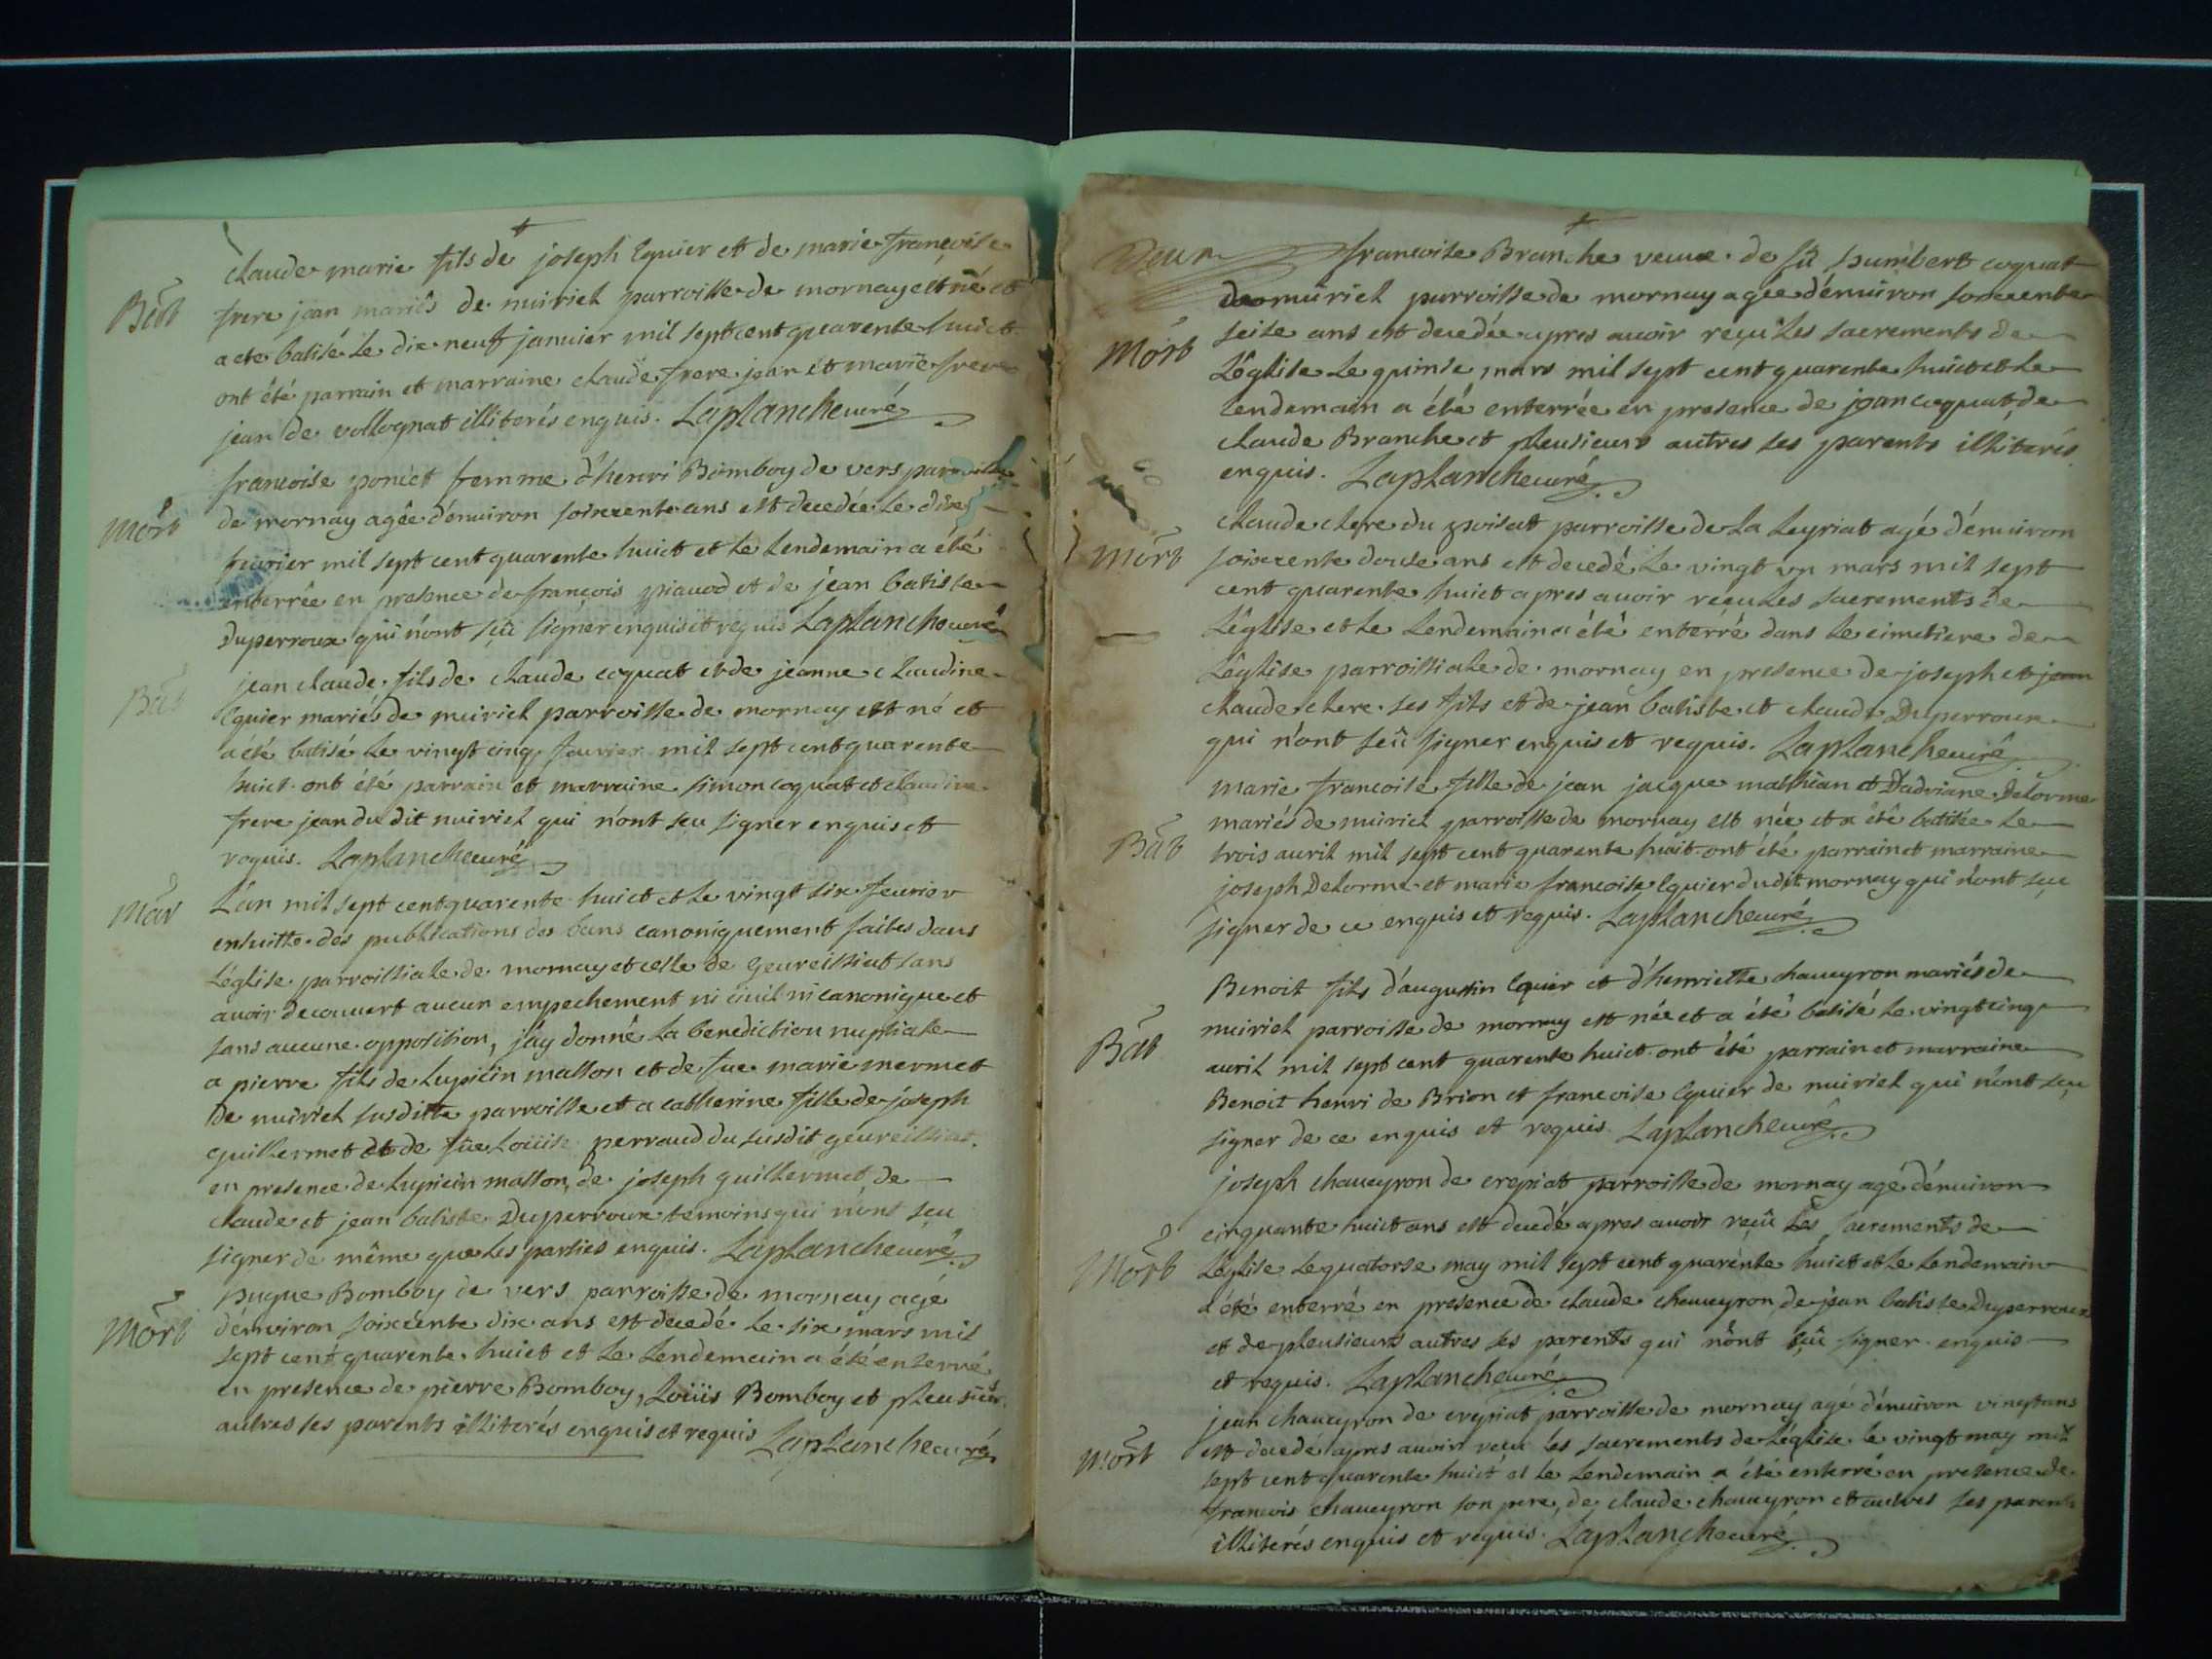 claude marie fils de joseph Eguier et de marie françoise
Bat
frere jean mariés de nuiriel parroisse de mornay est né et
a ete batisé le dix neuf janvier mil sept cent quarente huict
ont été parrain et marraine claude frere jean et marie frere
jean de vollognat illiterés enquis. Laplanche curé
francoise poncet femme d'henri Bomboy de vers parroisse
Mort
de mornay agêe d'environ soixcente ans est decedée le dixe
feuvrier mil sept cent quarente huict et le lendemain a été
enterrée en presence de françois piavod et de jean batiste
Duperroux qui n'ont sçû signer enquis et requis Laplanche curé
jean claude fils de claude coquat et de jeanne claudine
Bat
Eguier mariés de nuiriel parroisse de mornay est né et
a été batisé le vingt cinq feuvrier mil sept cent quarente
huict ont été parrain et marraine simon coquat et claudine
frere jean du dit nuiriel qui n'ont seu signer enquis et
requis. Laplanche curé
Mar
L'an mil sept cent quarente huict et le vingt six feuvrier
ensuitte des publications des bans canoniquement faites dans
L'église parroissiale de mornay et celle de geureissiat sans
avoir decouvert aucun empechement ni civil ni canonique et
sans aucune opposition, j'ay donné la benediction nuptiale
a pierre fils de Lupicin masson et de fue marie mermet
de nuiriel susditte parroisse et a catherine fille de joseph
guillermet et de füe Loüise perraud du susdit geureissiat.
en presence de Lupicin masson, de joseph guillermet, de
claude et jean batiste Duperroux temoins qui n'ont sçu
signer de même que les parties enquis. Laplanche curé
hugue Bomboy de vers parroisse de mornay agé
Mort
d'environ soixcente dix ans est decedé le six mars mil
sept cent quarente huict et le lendemain a été enterré
en presence de pierre Bomboy, Loüis Bomboy et pleusieurs
autres ses parents illiterés enquis et requis Laplanche curé
Deux
francoise Branche veuve de fû humbert coquat
de nuiriel parroisse de mornay agée d'environ soixcente
Mort
seise ans est decedée apres avoir reçû les sacrements de
L'église le quinse mars mil sept cent quarente huict et le
lendemain a été enterrée en presence de jean coquat, de
claude Branche et pleusieurs autres ses parents illiterés
enquis. Laplanche curé
claude clere du poisat parroisse de la Leyriat agé d'environ
Mort
soixcente douse ans est decedé le vingt un mars mil sept
cent quarente huict apres avoir reçu les sacrements de
L'église et le lendemain a été enterré dans le cimetiere de
L'église parroissiale de mornay en presence de joseph et jean
claude clere ses fils et de jean batiste et claude Duperroux
qui n'ont seû signer enquis et requis. Laplanche curé
marie francoise fille de jean jacque mathian et D'adriane Delorme
mariés de nuiriel parroisse de mornay est née et a été batisée le
Bat
trois avril mil sept cent quarente huict ont été parrain et marraine
joseph Delorme et marie francoise Eguier dudit mornay qui n'ont sçu
signer de ce enquis et requis. Laplanche curé
Benoit fils d'augustin Eguier et d'henriette chaveyron mariés de
nuiriel parroisse de mornay est née et a été batisé le vingt cinq
Bat
avril mil sept cent quarente huict ont été parrain et marraine
Benoit henri de Brion et francoise Eguier de nuiriel qui n'ont sçu
signer de ce enquis et requis Laplanche curé
joseph chaveyron de crepiat parroisse de mornay agé d'environ
cinquante huict ans est decedé apres avoir reçû les sacrements de
Mort
L'église le quatorse may mil sept cent quarente huict et le lendemain
a été enterré en presence de claude chaveyron, de jean batiste Duperroux
et de pleusieurs autres ses parents qui n'ont sçû signer enquis
et requis. Laplanche curé
jean chaveyron de crepiat parroisse de mornay agé d'environ vingt ans
Mort
est decedé apres avoir reçu les sacrements de L'église le vingt may mil
sept cent quarente huict et le lendemain a été enterré en presence de
francois chaveyron son pere, de claude chaveyron et autres ses parents
illiterés enquis et requis. Laplanche curé